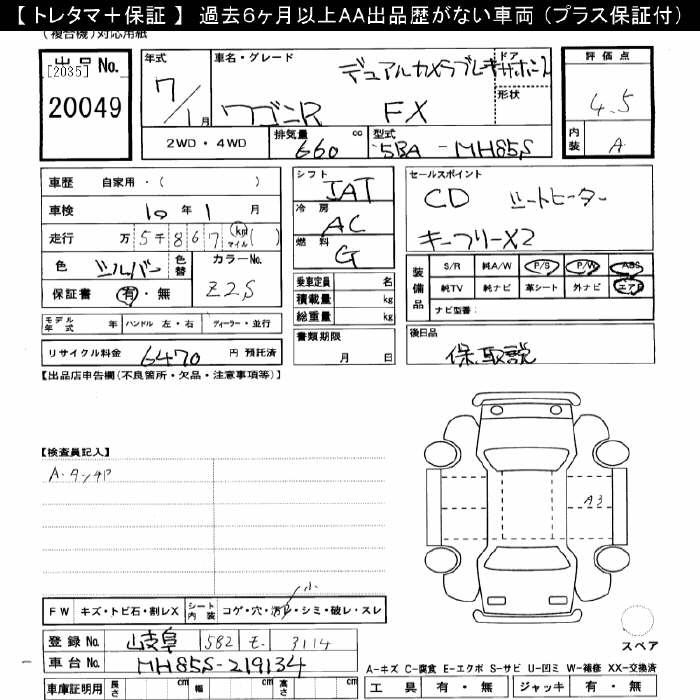 【 トレタマ＋保証 】 過去６ヶ月以上ＡＡ出品歴がない車両（プラス保証付）
(複合機)対応用紙
出品 No.
[2035]
20049
年式
7/1月
車名・グレード
デュアルカメラブレーキサポート
ワゴンR FX
ドア
形状
評価点
4.5
内装 A
2WD・4WD
排気量 660 cc
型式 5BA-MH85S
車歴 自家用・( )
車検 10年1月
走行 万5千867km マイル( )
色 シルバー 色替
カラーNo. Z2S
保証書 有・無
シフト IAT
冷房 AC
燃料 G
乗車定員 名
積載量 kg
総重量 kg
セールスポイント
CD シートヒーター
キーフリーX2
装備品
S/R 純A/W P/S P/W ABS
純TV 純ナビ 革シート 外ナビ エアB
ナビ型番:
モデル年式 年 ハンドル 左・右 ディーラー・並行
リサイクル料金 6470 円 預託済
書類期限
月 日
後日品
保.取説
【出品店申告欄(不良箇所・欠品・注意事項等)】
【検査員記入】
A3
FW キズ・トビ石・割レX シート内装 コゲ・穴・汚レ・シミ・破レ・スレ
小
登録 No. 岐阜 582 モ 3114
車台 No. MH85S-219134
スペア
A-キズ C-腐食 E-エクボ S-サビ U-凹ミ W-補修 XX-交換済
車庫証明用 長さ cm 幅 cm 高さ cm
工具 有・無 ジャッキ 有・無